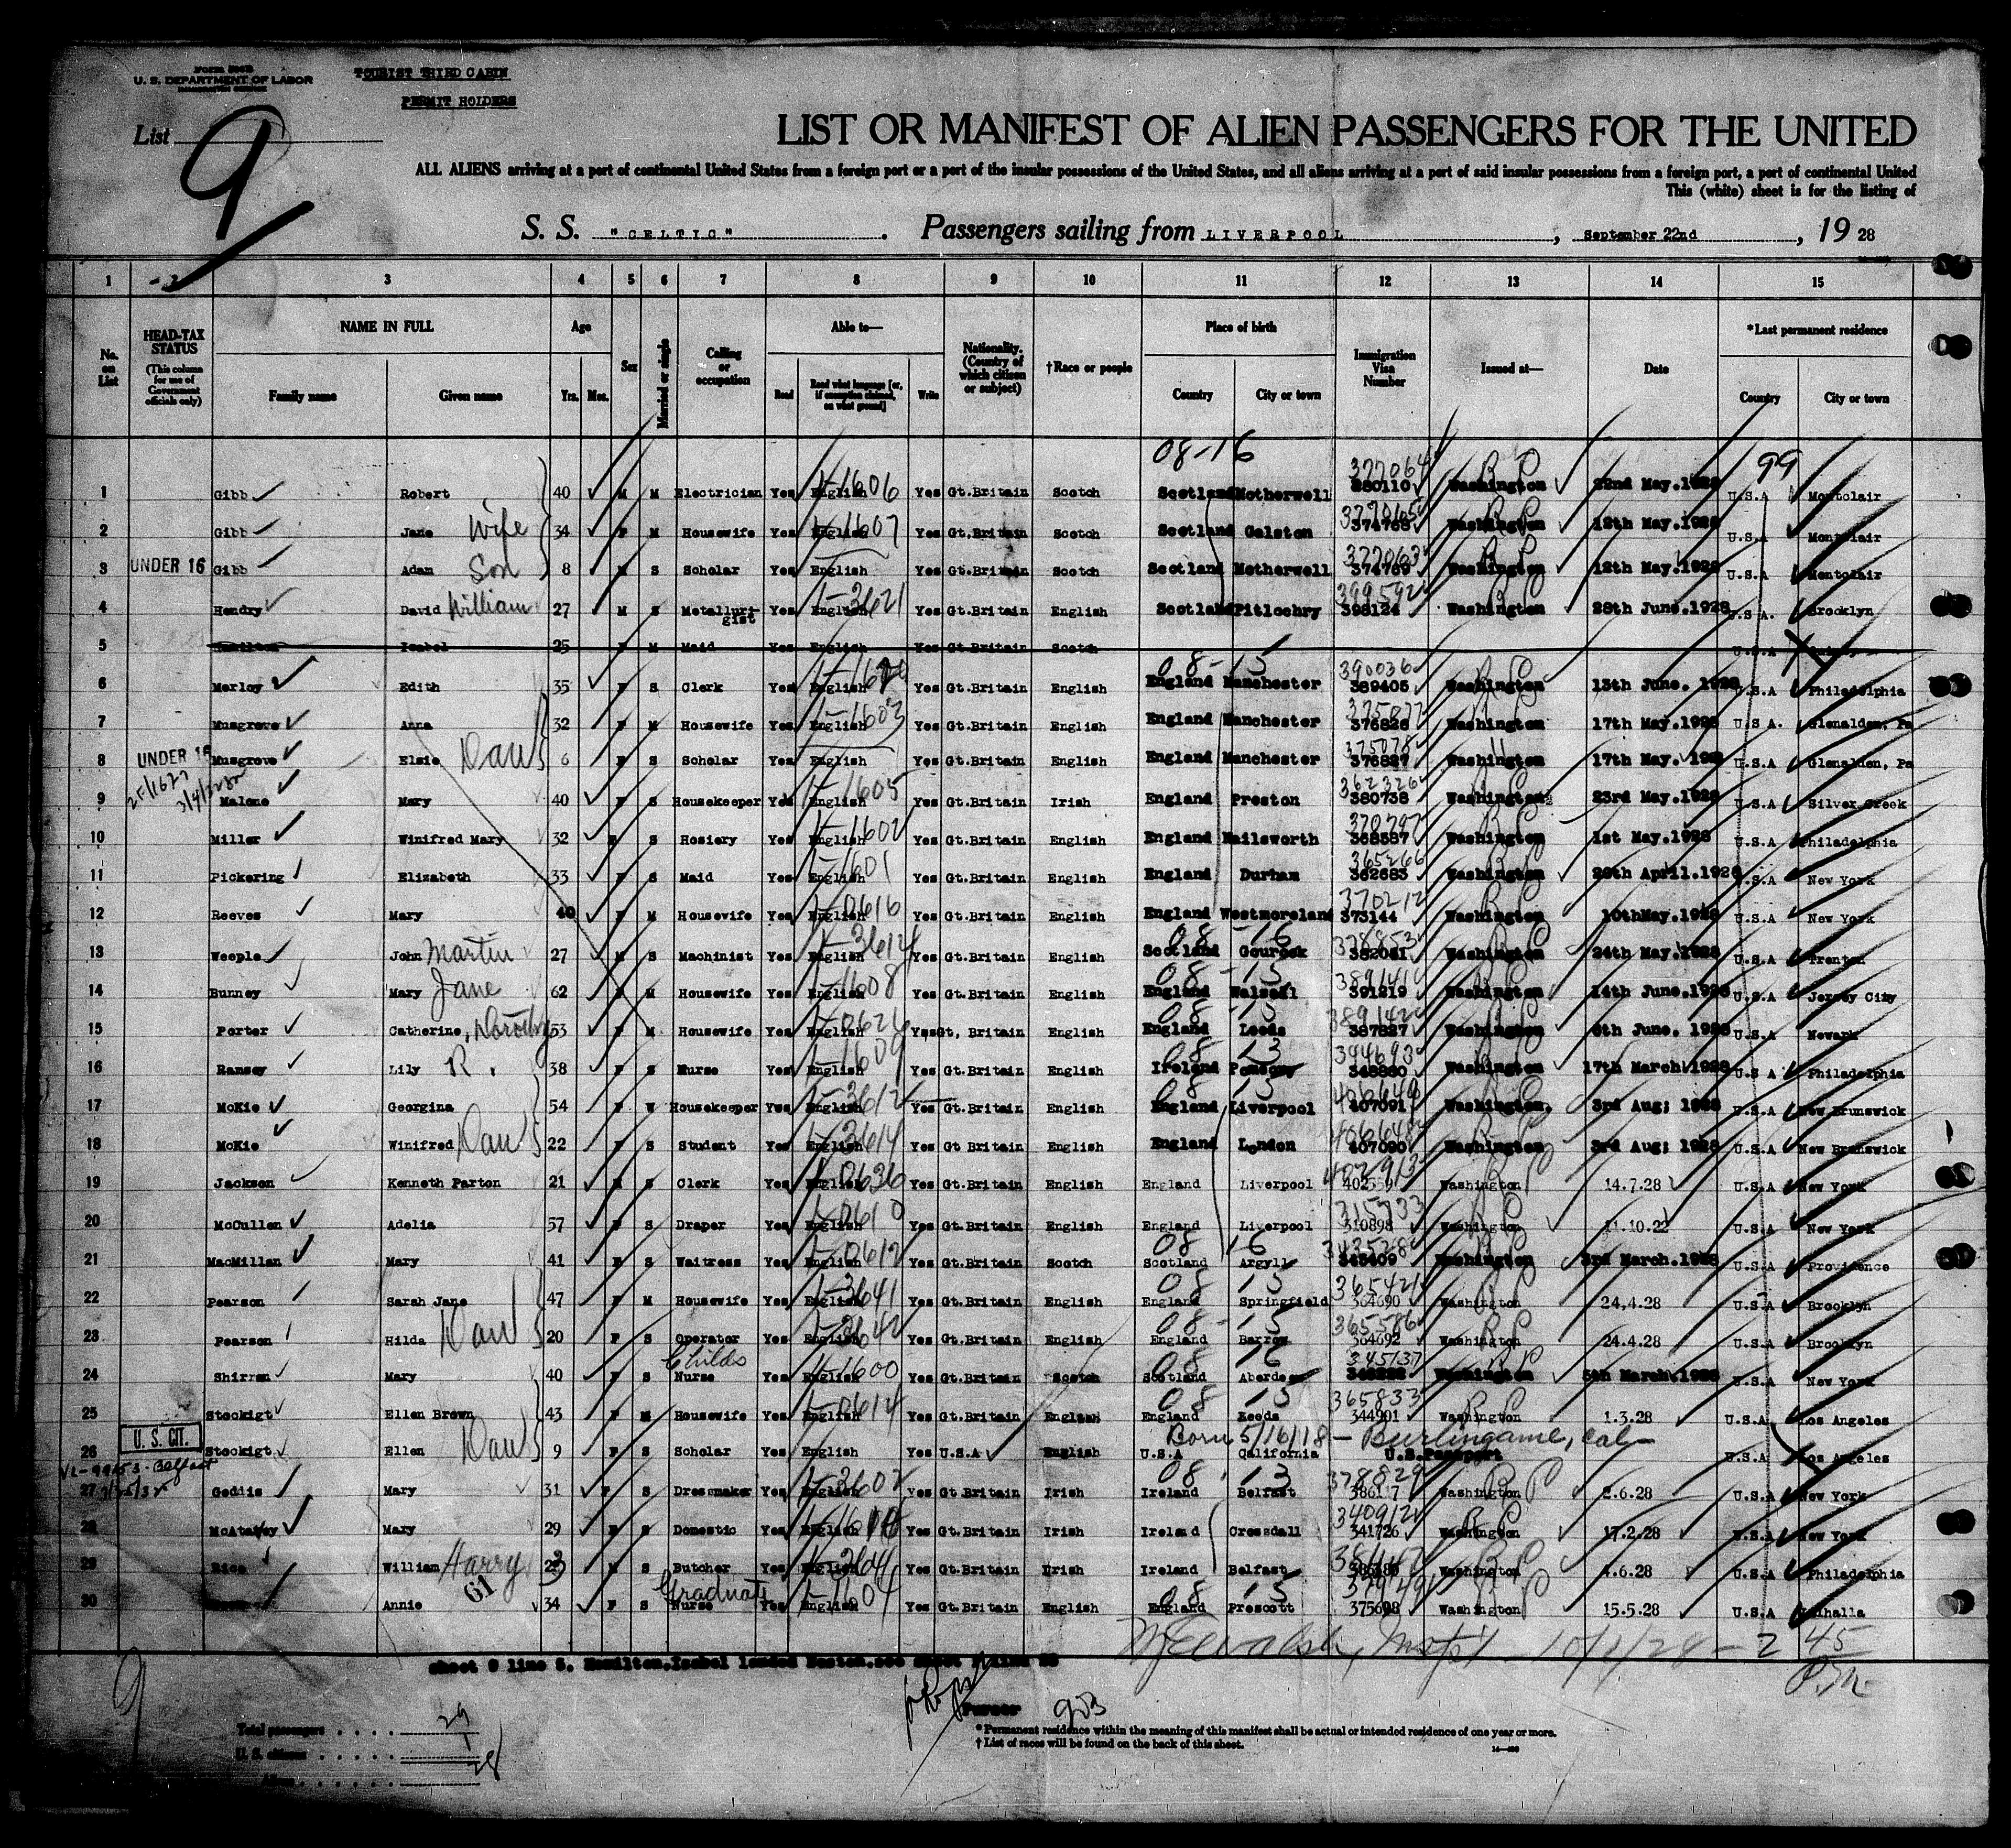 Form 500B
U. S. DEPARTMENT OF LABOR
TOURIST THIRD CABIN
PERMIT HOLDERS
List 9
LIST OR MANIFEST OF ALIEN PASSENGERS FOR THE UNITED
ALL ALIENS arriving at a port of continental United States from a foreign port or a port of the insular possessions of the United States, and all aliens arriving at a port of said insular possessions from a foreign port, a port of continental United
This (white) sheet is for the listing of
S. S. "CELTIC". Passengers sailing from LIVERPOOL, September 22nd, 19 28
1 2 3 4 5 6 7 8 9 10 11 12 13 14 15
No. on List
HEAD-TAX STATUS (This column for use of Government officials only)
NAME IN FULL Family name Given name
Age Yrs. Mos.
Sex
Married or single
Calling or occupation
Able to— Read Read what language [or, if exemption claimed, on what ground] Write
Nationality. (Country of which citizen or subject)
†Race or people
Place of birth Country City or town
Immigration Visa Number
Issued at—
Date
*Last permanent residence Country City or town
08-16 99
377064
1 Gibb Robert 40 M M Electrician Yes English 1-1606 Yes Gt.Britain Scotch Scotland Motherwell 380110 Washington 22nd May.1928 U.S.A Montclair
2 Gibb Jane Wife 34 F M Housewife Yes English 1607 Yes Gt.Britain Scotch Scotland Galston 374768 Washington 12th May.1928 U.S.A Montclair
377063
3 UNDER 16 Gibb Adam Son 8 M S Scholar Yes English Yes Gt.Britain Scotch Scotland Motherwell 374769 Washington 12th May.1928 U.S.A Montclair
399592
4 Hendry David William 27 M S Metallurgist Yes English 1-3621 Yes Gt.Britain English Scotland Pitlochry 398124 Washington 28th June.1928 U.S.A. Brooklyn
5 Hamilton Isabel 25 F M Maid Yes English Yes Gt.Britain Scotch U.S.A
08-15 390036
6 Marloy Edith 35 F S Clerk Yes English Yes Gt.Britain English England Manchester 389405 Washington 13th June. 1928 U.S.A Philadelphia
7 Musgrove Anna 32 F M Housewife Yes English 1-1603 Yes Gt.Britain English England Manchester 376826 Washington 17th May.1928 U.S.A. Glenalden, Pa
375078
8 UNDER 16 Musgrove Elsie Dau 6 F S Scholar Yes English Yes Gt.Britain English England Manchester 376827 Washington 17th May.1928 U.S.A Glenalden, Pa
362326
9 Malone Mary 40 F S Housekeeper Yes English 1-1605 Yes Gt.Britain Irish England Preston 380738 Washington 23rd May.1928 U.S.A Silver Creek
370797
10 Miller Winifred Mary 32 F S Hosiery Yes English 1-1602 Yes Gt.Britain English England Nailsworth 368587 Washington 1st May.1928 U.S.A Philadelphia
365266
11 Pickering Elizabeth 33 F S Maid Yes English 1-1601 Yes Gt.Britain English England Durham 362683 Washington 20th April.1928 U.S.A New York
370212
12 Reeves Mary 40 F M Housewife Yes English 1-0616 Yes Gt.Britain English England Westmoreland 373144 Washington 10thMay.1928 U.S.A New York
08-16 378853
13 Weeple John Martin 27 M S Machinist Yes English 1-3614 Yes Gt.Britain English Scotland Gourock 382081 Washington 24th May.1928 U.S.A Trenton
08-15 389141
14 Bunney Mary Jane 62 F M Housewife Yes English 1-1608 Yes Gt.Britain English England Walsall 391219 Washington 14th June.1928 U.S.A Jersey City
08 15 389142
15 Porter Catherine, Dorothy 53 F M Housewife Yes English Yes Gt, Britain English England Leeds 387827 Washington 6th June. 1928 U.S.A Newark
08 13 344693
16 Ramsey Lily R. 38 F S Nurse Yes English 1-1609 Yes Gt.Britain English Ireland Washington 17th March.1928 U.S.A Philadelphia
08 15 406649
17 McKie Georgina 54 F W Housekeeper Yws English 1-3612 Yes Gt.Britain English England Liverpool 407091 Washington. 3rd Aug; 1928 U.S.A New Brunswick
406648
18 McKie Winifred Dau 22 F S Student Yes English 1-3614 Yes Gt Britain English England London 407090 Washington 3rd Aug; 1928 U.S.A New Brunswick
402913
19 Jackson Kenneth Parton 21 M S Clerk Yes English 1-0636 Yes Gt.Britain English England Liverpool Washington 14.7.28 U.S.A New York
315933
20 McCullen Adelia 57 F S Draper Yes English 1-0610 Yes Gt.Britain English England Liverpool 310898 Washington 11.10.22 U.S.A New York
08 16
21 MacMillan Mary 41 F S Waitress Yes English 1-0612 Yes Gt.Britain Scotch Scotland Argyll 345409 Washington 3rd March.1928 U.S.A Providence
08 15 365421
22 Pearson Sarah Jane 47 F M Housewife Yes English 1-3641 Yes Gt.Britain English England Springfield 364690 Washington 24.4.28 U.S.A Brooklyn
08-15 365586
23 Pearson Hilda Dau 20 F S Operator Yes English 1-3642 Yes Gt.Britain English England Barrow 364692 Washington 24.4.28 U.S.A Brooklyn
08 16 345137
24 Shirran Mary 40 F S Childs Nurse Yes English 1-1600 Yes Gt.Britain Scotch Scotland Aberdeen Washington 5th March.1928 U.S.A New York
08 15 365833
25 Stockigt Ellen Brown 43 F M Housewife Yes English 1-0614 Yes Gt.Britain English England Leeds 344901 Washington 1.3.28 U.S.A Los Angeles
Born 5/16/18 - Burlingame, Cal-
26 U. S. CIT. Stockigt Ellen Dau 9 F S Scholar Yes English Yes U.S.A English U.S.A California U.S.Passport U.S.A Los Angeles
Belfast
08 13 378829
27 Geddis Mary 31 F S Dressmaker Yes English 1-3602 Yes Gt Britain Irish Ireland Belfast Washington 2.6.28 U.S.A New York
340912
28 Mary 29 F S Domestic Yes English Yes Gt.Britain Irish Ireland Crossdall 341726 Washington 17.2.28 U.S.A New York
29 Rice William Harry 22 M S Butcher Yes English Yes Gt.Britain Irish Ireland Belfast Washington 4.6.28 U.S.A Philadelphia
08 15
30 Annie 61 34 F S Graduate Nurse Yes English 1-1604 Yes Gt.Britain English England Prescott 375698 Washington 15.5.28 U.S.A Valhalla
10/1/28 - 2 45 P.M.
sheet 9 line 5. Hamilton,Isabel landed Boston.see sheet
9
Purser 953
Total passengers 29
U. S. citizens 1
28
* Permanent residence within the meaning of this manifest shall be actual or intended residence of one year or more.
† List of races will be found on the back of this sheet.